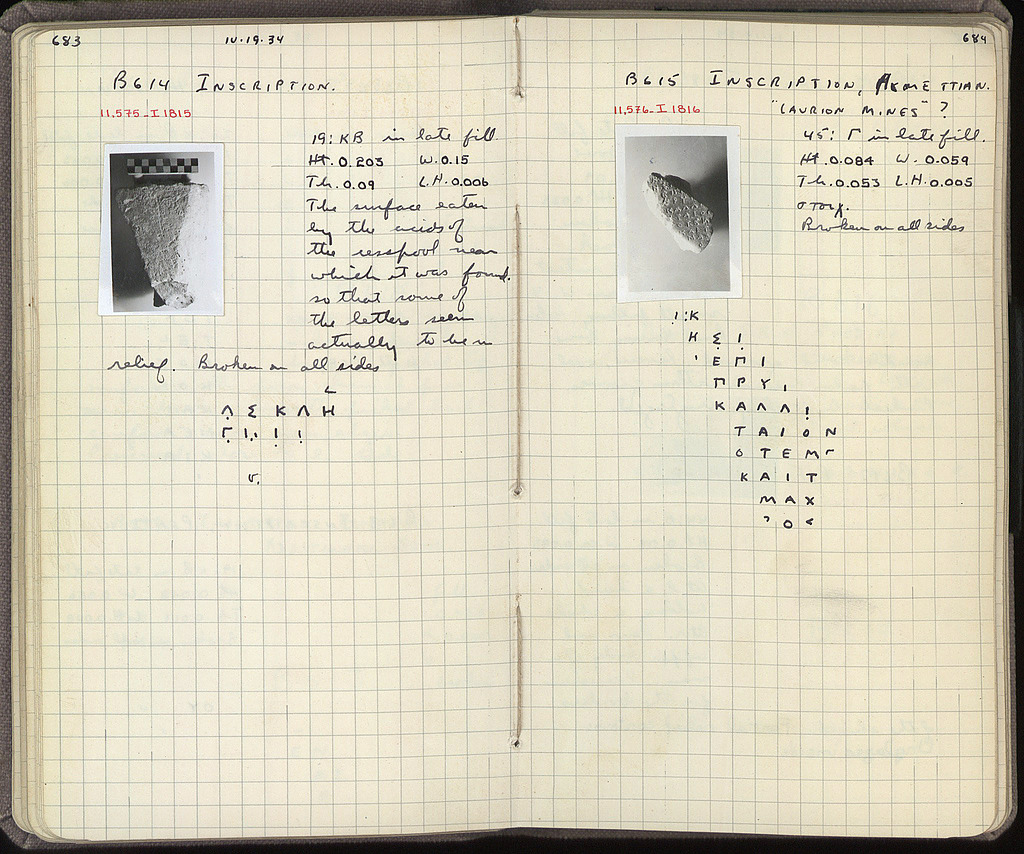 683
10.19.34
B614 INSCRIPTION.
11,575-I 1815
19: KB in late fill
Ht. 0.203 W. 0.15
Th. 0.09 L.H. 0.006
The surface eaten
by the acids of
the cesspool near
which it was found.
so that some of
the letters seem
actually to be in
relief. Broken on all sides
Λ Σ Κ Λ Η
684
B615 INSCRIPTION,
11,576-I 1816
"LAURION MINES" ?
45: Γ in late fill.
Ht. 0.084 W. 0.059
Th. 0.053 L.H. 0.005
στοιχ.
Broken on all sides
! : Κ
Η Σ !
' Ε Π Ι
Π Ρ Υ ,
Κ Α Λ Λ !
Τ Α Ι Ο Ν
Ο Τ Ε Μ Γ
Κ Α Ι Τ
Μ Α Χ